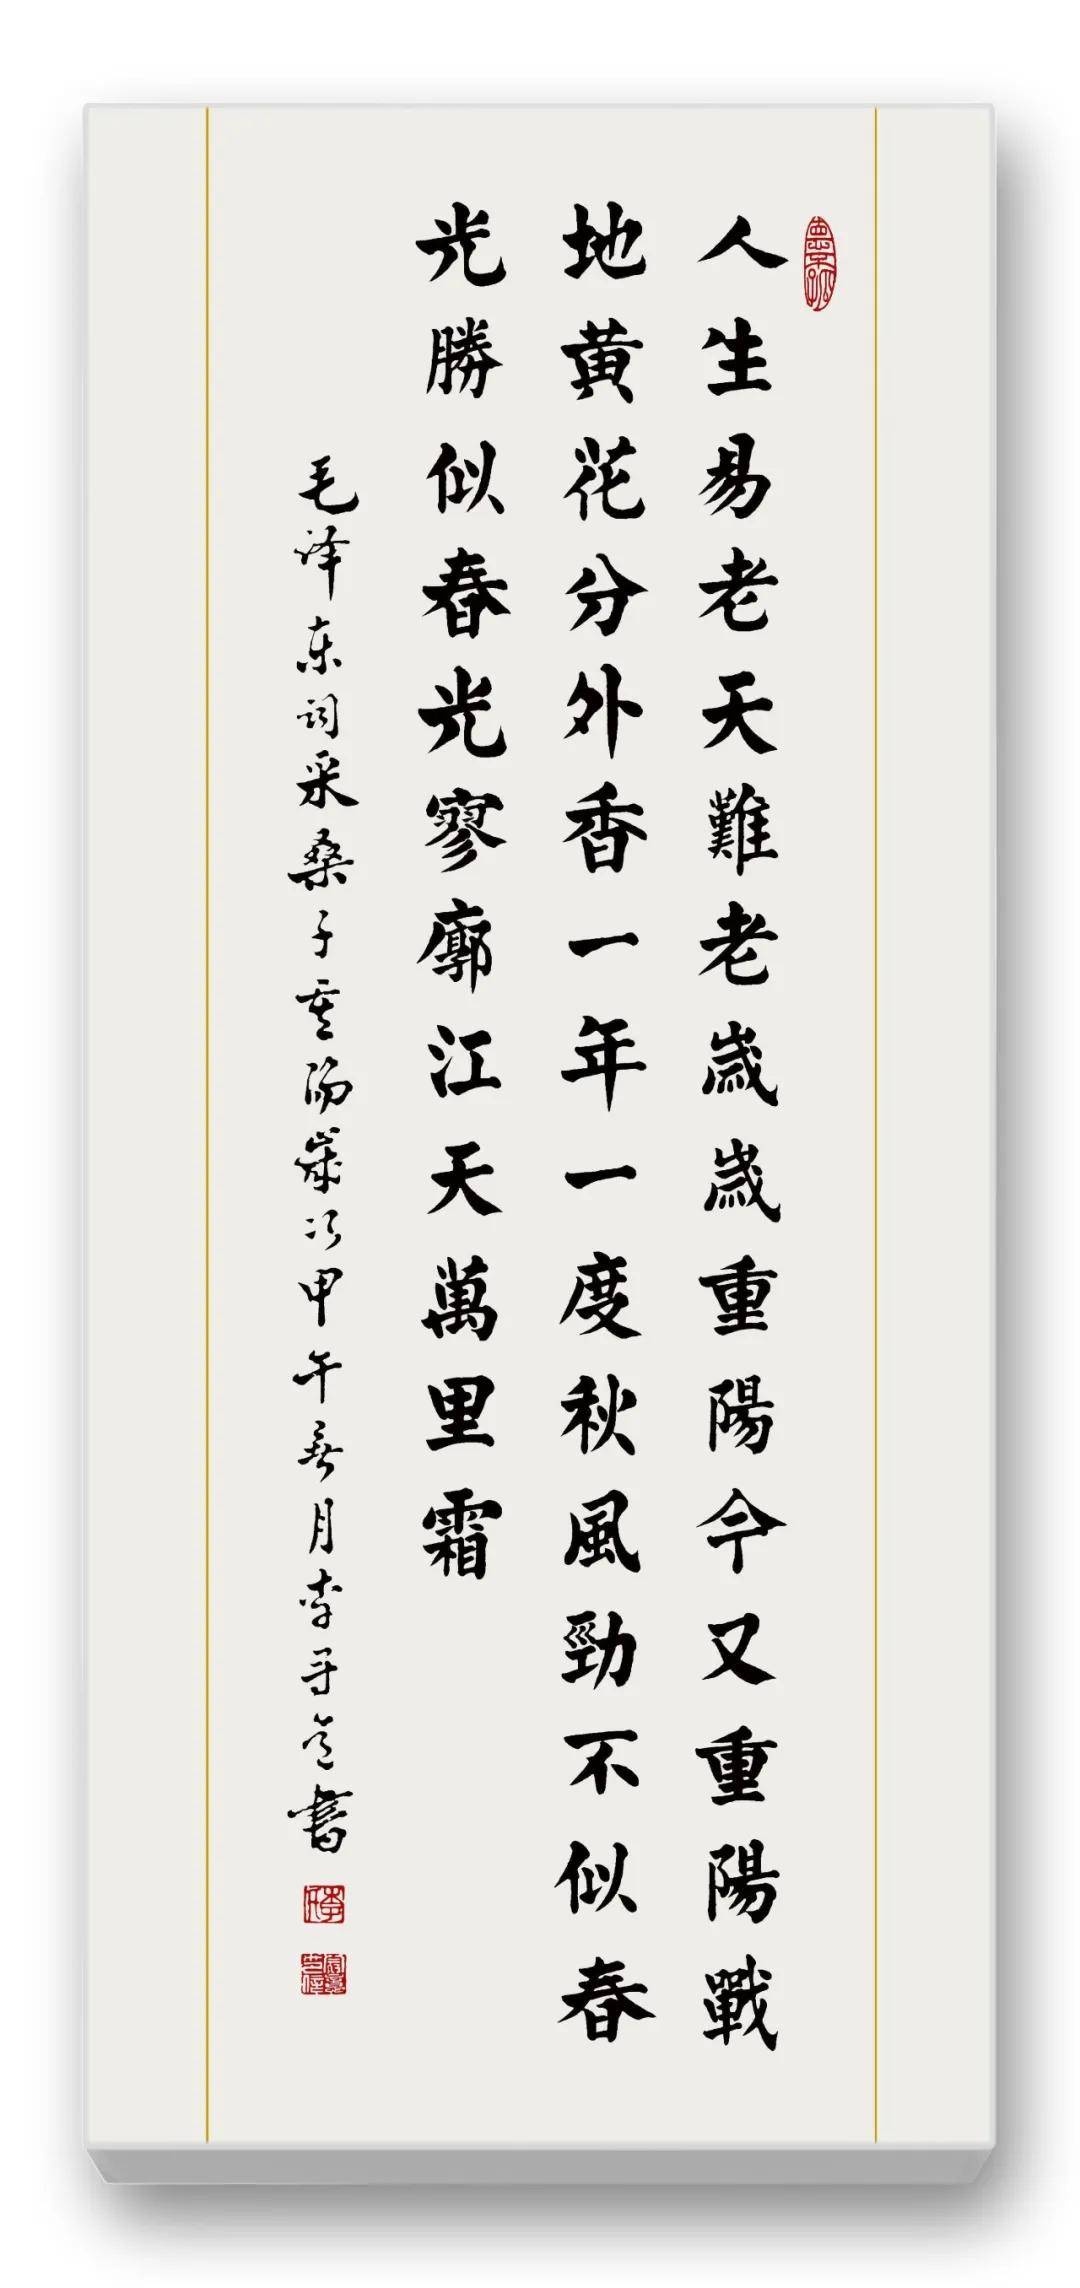 人生易老天難老歲歲重陽今又重陽戰
地黄花分外香一年一度秋風勁不似春
光勝似春光寥廓江天萬里霜
毛泽东词采桑子重阳歲次甲午春月李守意書